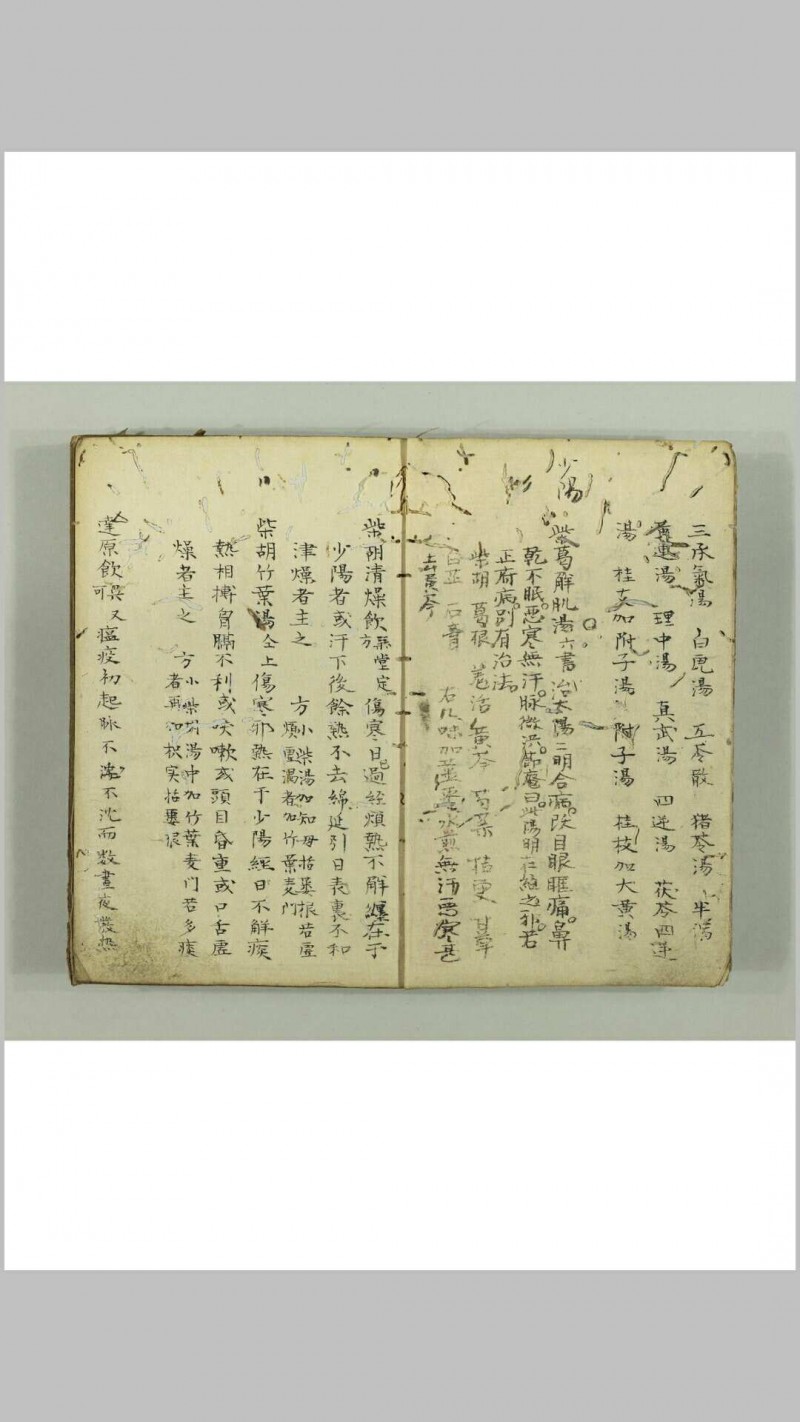 三承氣湯 白虎湯 五苓散 猪苓湯 半瀉
湯 理中湯 真武湯 四逆湯 茯苓四逆
湯 桂支加附子湯 附子湯 桂枝加大黄湯
少陽
柴葛解肌湯 六書 治太陽 明合病 目眼眶痛 鼻
乾不眠 惡寒無汗 脉微洪 節庵曰此陽明在經之邪 若
正府病 別有治法
柴胡 葛根 羗活 黄芩 芍薬 桔更 甘草
白芷 石膏 右八味加薑棗水煎 無汗惡寒甚
去黄芩
柴胡清燥飲 堂定方 傷寒日過經煩熱不解纏在于
少陽者或汗下後餘熱不去綿延引日表裏不和
津燥者主之 方 小柴湯加知母括蔞根若虚
煩 渴者加竹葉麦門
柴胡竹葉湯 仝上 傷寒邪熱在于少陽經日不解痰
熱相摶胷膈不利或咳嗽或頭目昏重或口舌虚
燥者主之 方 小柴胡湯中加竹葉麦門若多痰
者再加枳実括蔞根
達原飲 呉又可 瘟疫初起脉不浮不沈而数晝夜發熱